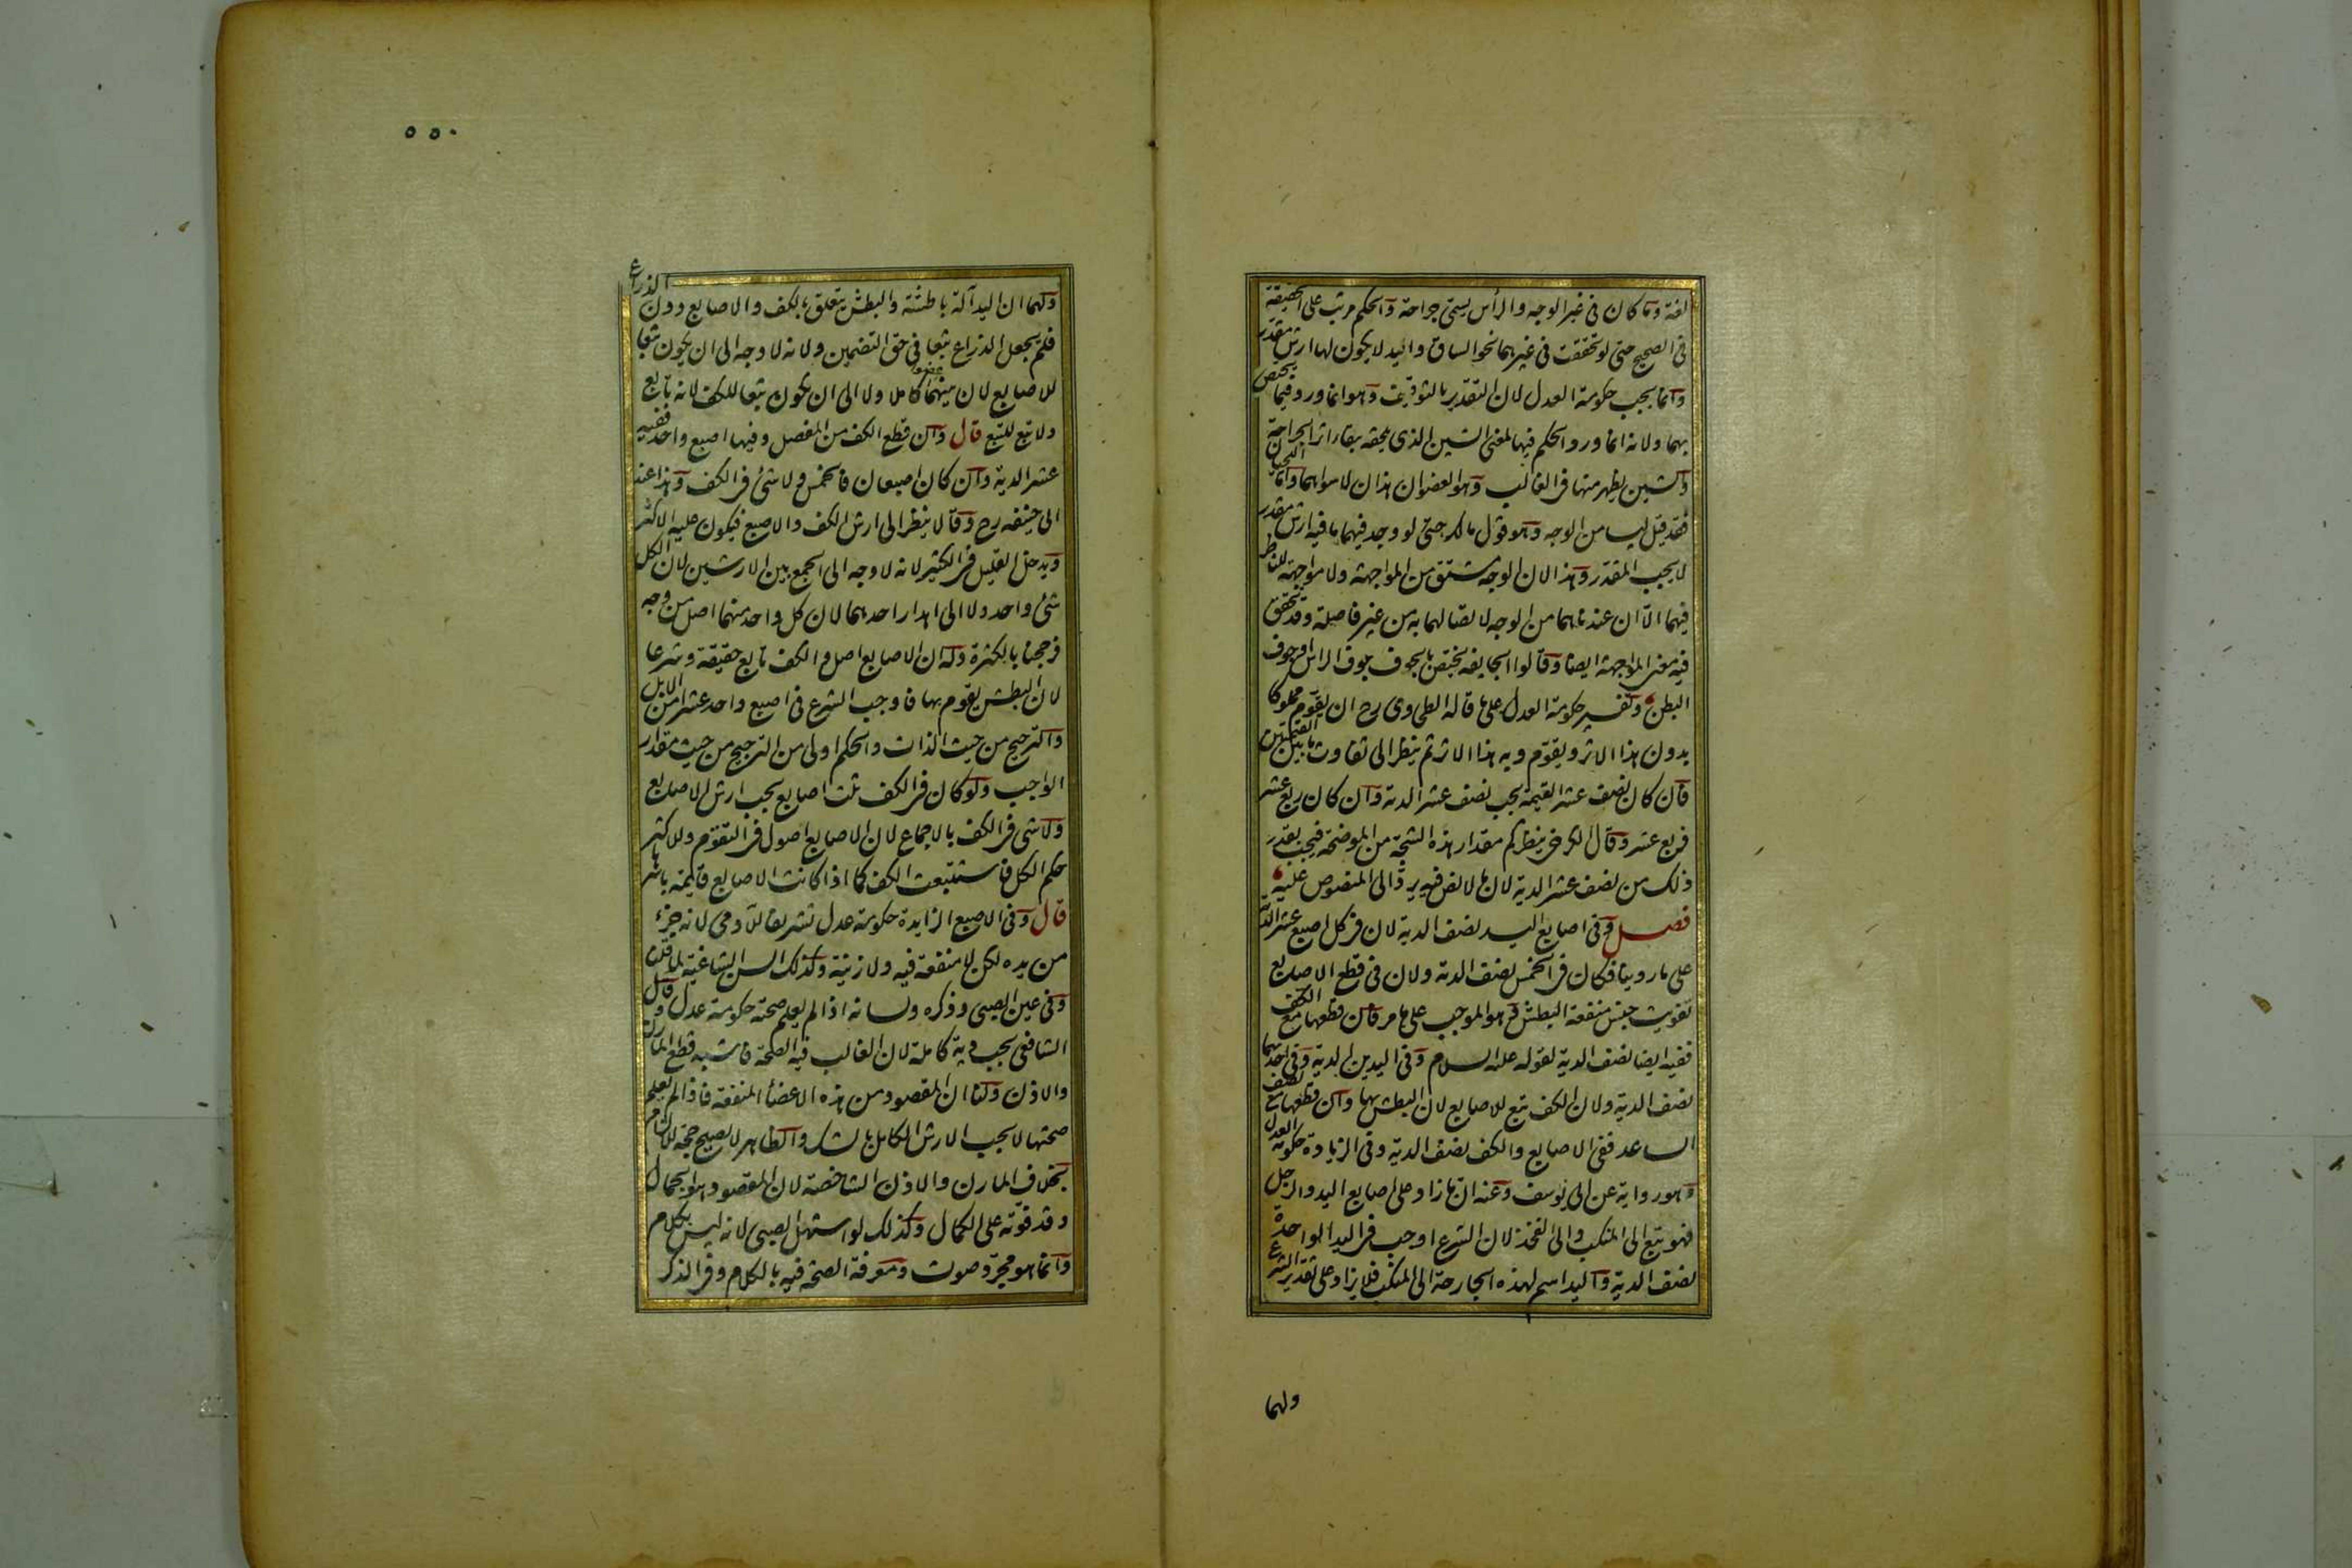 لغة وما كان فى غير الوجه والرأس يسمى جراحة والحكم مرتب على الحقيقة
فى الصحيح حتى لو تحققت فى غيرهما نحو الساق واليد لا يكون لها ارش مقدر
وانما يجب حكومة العدل لان التقدير بالتوقيف وهو انما ورد فيما يختص
بهما ولانه انما ورد الحكم فيها لمعنى الشين الذى يلحقه ببقاء اثر الجراحة
والشين يظهر منها فى الغالب وهو العضوان هذان لا سواهما واما اللحيان
فقد قيل ليسا من الوجه وهو قول مالك حتى لو وجد فيهما ما فيه ارش مقدر
لا يجب المقدر وهذا لان الوجه مشتق من المواجهة ولا مواجهة للناظر
فيهما الا ان عندنا هما من الوجه لاتصالهما به من غير فاصلة وقد يتحقق
فيه معنى المواجهة ايضا وقالوا الجايفه تختص بالجوف جوف الراس وجوف
البطن وتفسير حكومة العدل على ما قاله الطحاوى رح ان يقوم مملوكا
بدون هذا الاثر ويقوم وبه هذا الاثر ثم ينظر الى تفاوت ما بين القيمتين
فان كان نصف عشر القيمة يجب نصف عشر الدية وان كان ربع عشر
فربع عشر وقال الكرخى ينظر كم مقدار هذه الشجة من الموضحة فيجب بقدر
ذلك من نصف عشر الدية لان ما لا نص فيه يرد الى المنصوص عليه
فصل وفى اصابع اليد نصف الدية لان فى كل اصبع عشر الدية
على ما روينا فكان فى الخمس نصف الدية ولان فى قطع الاصابع
تفويت جنس منفعة البطش وهو الموجب على ما مر فان قطعها مع الكف
ففيه ايضا نصف الدية لقوله عليه السلام وفى اليدين الدية وفى احديهما
نصف الدية ولان الكف تبع للاصابع لان البطش بها وان قطعها مع نصف
الساعد ففى الاصابع والكف نصف الدية وفى الزيادة حكومة العدل
وهو رواية عن ابى يوسف وعنه ان ما زاد على اصابع اليد والرجل
فهو تبع الى المنكب والى الفخذ لان الشرع اوجب فى اليد الواحدة
نصف الدية واليد اسم لهذه الجارحة الى المنكب فلا يزاد على تقدير الشرع
ولهما
٥٥٠
ولهما ان اليد آلة باطشة والبطش يتعلق بالكف والاصابع دون الذراع
فلم يجعل الذراع تبعا فى حق التضمين ولانه لا وجه الى ان يكون تبعا
للاصابع لان بينهما عضوا كاملا ولا الى ان يكون تبعا للكف لانه تابع
ولا تبع للتبع قال وان قطع الكف من المفصل وفيها اصبع واحد ففيه
عشر الدية وان كان اصبعان فالخمس ولا شئ فى الكف وهذا عند
ابى حنيفه رح وقالا ينظر الى ارش الكف والاصبع فيكون عليه الاكثر
ويدخل القليل فى الكثير لانه لا وجه الى الجمع بين الارشين لان الكل
شئ واحد ولا الى اهدار احدهما لان كل واحد منهما اصل من وجه
فرجحنا بالكثرة وله ان الاصابع اصل والكف تابع حقيقة وشرعا
لان البطش يقوم بها فاوجب الشرع فى اصبع واحد عشرا من الابل
والترجيح من حيث الذات والحكم اولى من الترجيح من حيث مقدار
الواجب ولو كان فى الكف ثلث اصابع يجب ارش الاصابع
ولا شئ فى الكف بالاجماع لان الاصابع اصول فى التقوم وللاكثر
حكم الكل فاستتبعت الكف كما اذا كانت الاصابع قايمة باسرها
قال وفى الاصبع الزايدة حكومة عدل تشريفا للآدمى لانه جزء
من يده لكن لا منفعة فيه ولا زينة وكذلك السن الشاغية لما قلنا
وفى عين الصبى وذكره ولسانه اذا لم يعلم صحته حكومة عدل وقال
الشافعى يجب دية كاملة لان الغالب فيه الصحة فاشبه قطع المارن
والاذن ولنا ان المقصود من هذه الاعضأ المنفعة فاذا لم يعلم
صحتها لا يجب الارش الكامل بالشك والظاهر لا يصلح حجة للالزام
بخلاف المارن والاذن الشاخصة لان المقصود هو الجمال
وقد فوته على الكمال وكذلك لو استهل الصبى لانه ليس بكلام
وانما هو مجرد صوت ومعرفة الصحة فيه بالكلام وفى الذكر